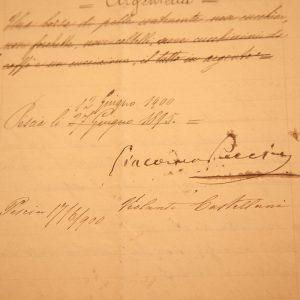 Argenteria
Una borsa di pelle contenente nove cucchiai,
nove forchette, nove coltelli, nove cucchiaini da
caffè e un uccisione, il tutto in argento =
12 Giugno 1900
Pescia li 27 Giugno 1895. =
Giacomo Puccini
Pescia 17/6/900 Violante Castellani